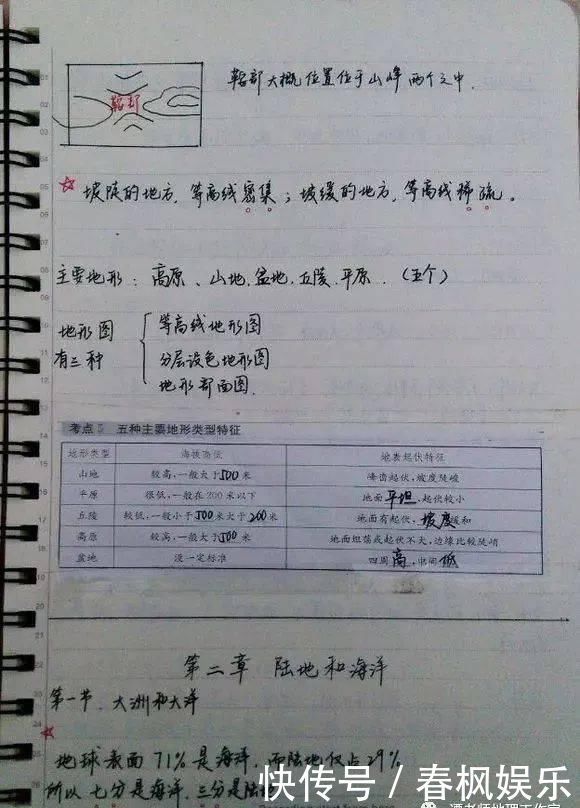 鞍部
鞍部大概位置位于山峰两个之中.
坡陡的地方,等高线密集;坡缓的地方,等高线稀疏。
主要地形:高原、山地,盆地,丘陵,平原.(五个)
地形图
有三种
等高线地形图
分层设色地形图
地形部面图.
考点5 五种主要地形类型特征
地形类型 海拔高低 地表起伏特征
山地 较高,一般大于500米 峰峦起伏,坡度陡峻
平原 很低,一般在200米以下 地面平坦,起伏较小
丘陵 较低,一般小于500米大于200米 地面有起伏,坡度缓和
高原 较高,一般大于500米 地面坦荡或起伏不大,边缘比较陡峭
盆地 没一定标准 四周高,中间低
第二章 陆地和海洋
第一节.大洲和大洋
地球表面71%是海洋,而陆地仅占29%
所以七分是海洋,三分是陆地
快传号/春风娱乐